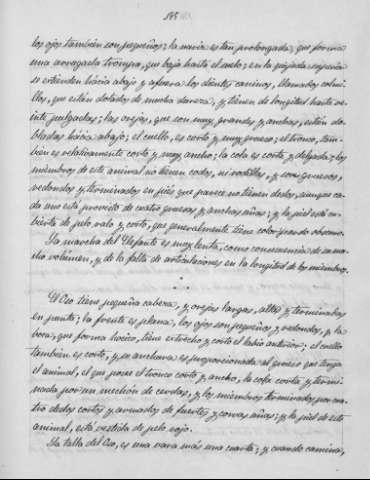 185
los ojos tambien son pequeños; la nariz es tan prolongada, que forma
una arrugada trompa, que baja hasta el suelo; en la quijada superior
se estienden hácia abajo y afuera los dientes caninos, llamados colmi-
llos, que están dotados de mucha dureza, y tienen de longitud hasta ve-
inte pulgadas; las orejas, que son muy grandes y anchas, están do-
bladas hácia abajo; el cuello, es corto y muy grueso; el tronco, tam-
bien es relativamente corto y muy ancho; la cola es corta y delgada; los
miembros de este animal no tienen codos, ni rodillas, y son gruesos,
redondos y terminados en piés que parece no tienen dedos, aunque ca-
da uno esta provisto de cuatro gruesas y anchas uñas; y la piel está cu-
bierta de pelo ralo y corto, que generalmente tiene color pardo obscuro.
La marcha del Elefante es muy lenta, como consecuencia de su mu-
cho volumen, y de la falta de articulaciones en la longitud de los miembros.
El Oso tiene pequeña cabeza, y orejas largas, altas y terminadas
en punta; la frente es plana, los ojos son pequeños y redondos, y la
boca, que forma hocico, tiene estrecho y corto el labio anterior; el cuello
tambien es corto, y su anchura es proporcionada al grueso que tenga
el animal, el que posee el tronco corto y ancho, la cola corta y termi-
nada por un mechón de cerdas, y los miembros terminados por cu-
atro dedos cortos y armados de fuertes y corvas uñas; y la piel de este
animal, está vestida de pelo rojo.
La talla del Oso, es una vara más una cuarta; y cuando camina,